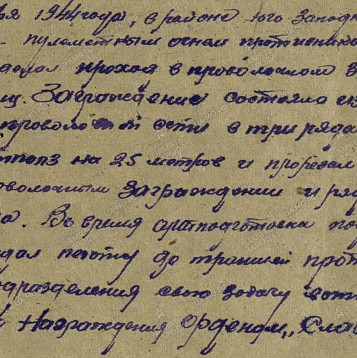 ря 1944 года, в районе юго запад
пулеметным огнем противника
делал проход в проволочном з
ниц. Заграждение состояло из
проволочной сети в три ряда
отполз на 25 метров и проделал
оволочным заграждении и ряд
а. Во время артподготовки по
дал пехоту до траншей прот
одразделения свою задачу
Награждения Орденом „Слав